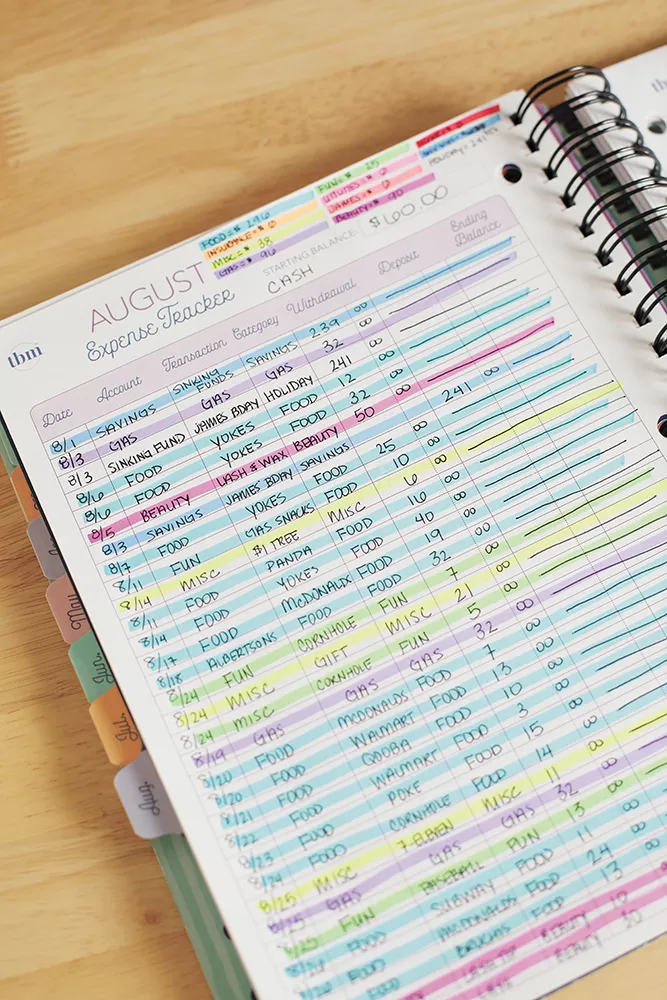 FOOD = $ 296
INSURANCE = $ 0
MISC = $ 38
GAS = $ 96
FUN = $ 25
UTILITIES = $ 0
JAMES = $ 0
BEAUTY = $ 90
HOLIDAY = 241.00
tbm
AUGUST
Expense Tracker
STARTING BALANCE
$160.00
CASH
Date Account Transaction Category Withdrawal Deposit Ending Balance
8/1 SAVINGS SINKING FUNDS SAVINGS 239 00
8/3 GAS GAS GAS 32 00
8/3 SINKING FUND JAMES BDAY HOLIDAY 241 00
8/6 FOOD YOKES FOOD 12 00
8/6 FOOD YOKES FOOD 32 00
8/5 BEAUTY LASH & WAX BEAUTY 50 00
8/3 SAVINGS JAMES BDAY SAVINGS 241 00
8/7 FOOD YOKES FOOD 25 00
8/11 FUN GAS SNACKS FOOD 10 00
8/14 MISC $1 TREE MISC 6 00
8/11 FOOD PANDA FOOD 16 00
8/14 FOOD YOKES FOOD 40 00
8/17 FOOD McDONALDS FOOD 19 00
8/18 ALBERTSONS FOOD FOOD 32 00
8/24 FUN CORNHOLE FUN 7 00
8/24 MISC GIFT MISC 21 00
8/24 MISC CORNHOLE FUN 5 00
8/19 GAS GAS GAS 32 00
8/20 FOOD MCDONALDS FOOD 7 00
8/20 FOOD WALMART FOOD 13 00
8/21 FOOD QDOBA FOOD 10 00
8/22 FOOD WALMART FOOD 3 00
8/23 FOOD POKE FOOD 15 00
8/24 FOOD CORNHOLE FOOD 14 00
8/25 MISC 7-ELEVEN MISC 11 00
8/25 GAS GAS GAS 32 00
8/25 FUN BASEBALL FUN 13 00
FOOD SUBWAY FOOD 11 00
FOOD MCDONALDS FOOD 24 00
FOOD BRUCHIS FOOD 13 00
LASH TIP BEAUTY 10
BEAUTY
Jun
Jul